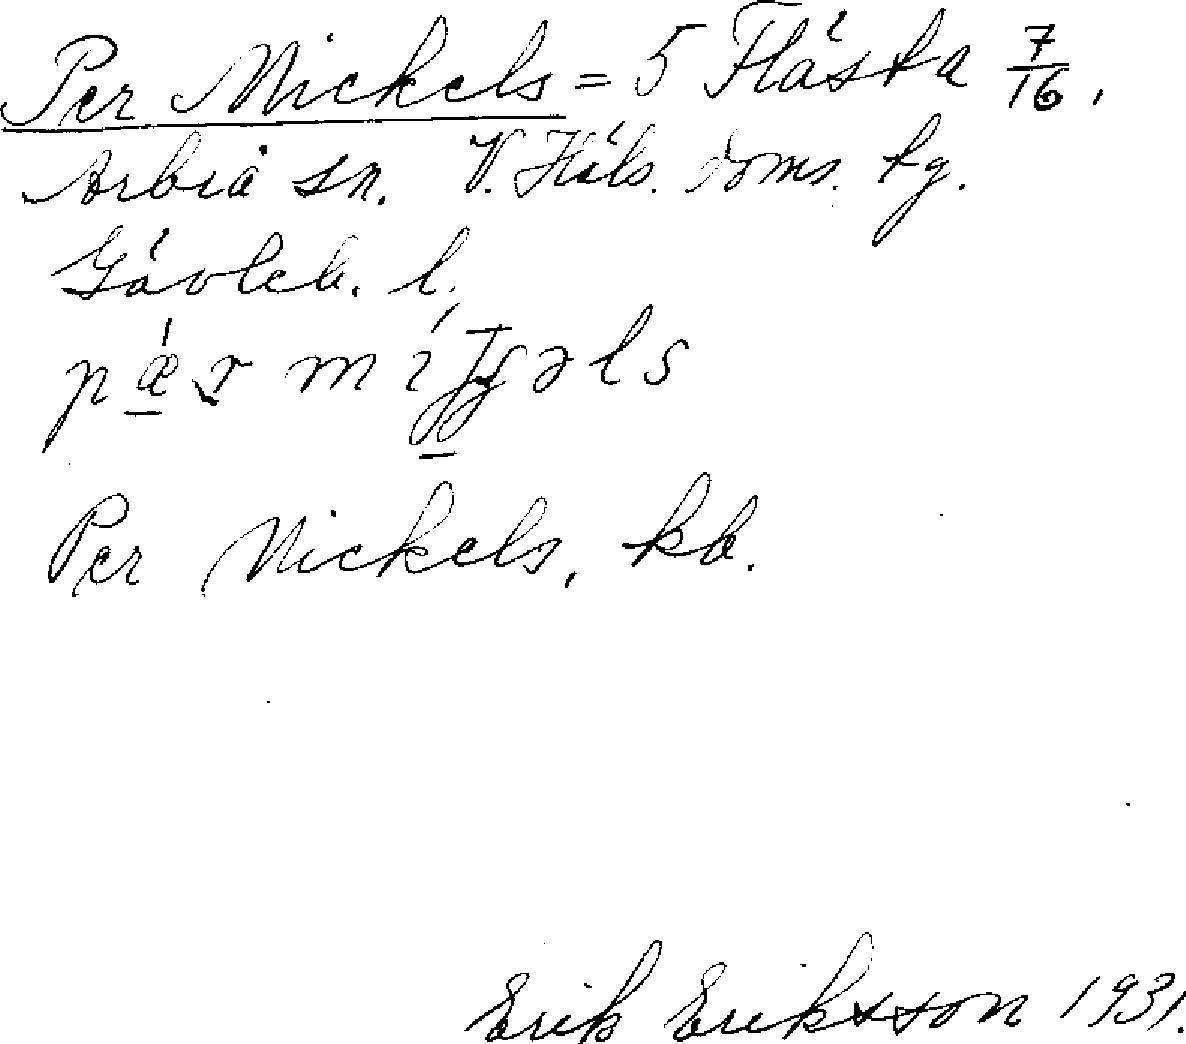 Per Nickels = 5 Flästa 7/16.
Arbrå sn. V. Häls. doms. tg.
Gävleb. l.
Per Nickels, kb.
Erik Eriksson 1931.